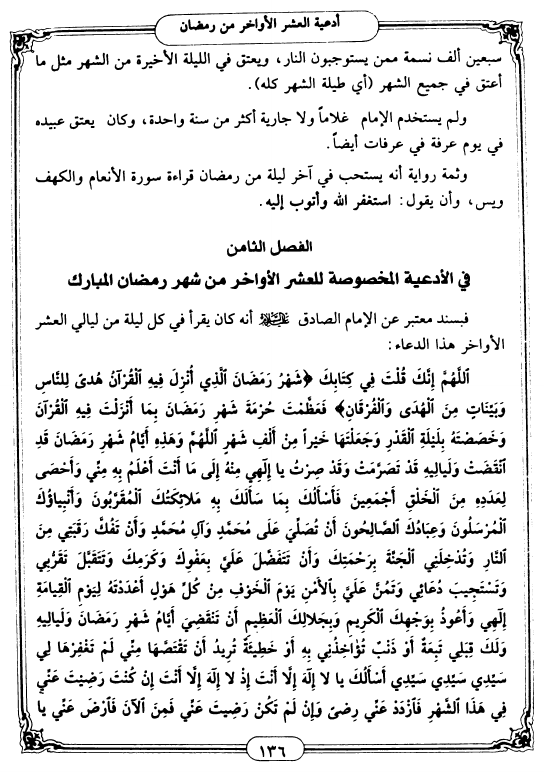 أدعية العشر الأواخر من رمضان
سبعين ألف نسمة ممن يستوجبون النار، ويعتق في الليلة الأخيرة من الشهر مثل ما
أعتق في جميع الشهر (أي طيلة الشهر كله).
ولم يستخدم الإمام غلاماً ولا جارية أكثر من سنة واحدة، وكان يعتق عبيده
في يوم عرفة في عرفات أيضاً.
وثمة رواية أنه يستحب في آخر ليلة من رمضان قراءة سورة الأنعام والكهف
ويس، وأن يقول: استغفر الله وأتوب إليه.
الفصل الثامن
في الأدعية المخصوصة للعشر الأواخر من شهر رمضان المبارك
فبسند معتبر عن الإمام الصادق عليه السلام أنه كان يقرأ في كل ليلة من ليالي العشر
الأواخر هذا الدعاء:
اَللَّهُمَّ إِنَّكَ قُلْتَ فِي كِتَابِكَ ﴿شَهْرُ رَمَضَانَ اَلَّذِي أُنْزِلَ فِيهِ اَلْقُرْآنُ هُدىً لِلنَّاسِ
وَبَيِّنَاتٍ مِنَ اَلْهُدَى وَاَلْفُرْقَانِ﴾ فَعَظَّمْتَ حُرْمَةَ شَهْرِ رَمَضَانَ بِمَا أَنْزَلْتَ فِيهِ اَلْقُرْآنَ
وَخَصَصْتَهُ بِلَيْلَةِ اَلْقَدْرِ وَجَعَلْتَهَا خَيْراً مِنْ أَلْفِ شَهْرٍ اَللَّهُمَّ وَهَذِهِ أَيَّامُ شَهْرِ رَمَضَانَ قَدِ
اِنْقَضَتْ وَلَيَالِيهِ قَدْ تَصَرَّمَتْ وَقَدْ صِرْتُ يا إِلَهِي مِنْهُ إِلَى مَا أَنْتَ أَعْلَمُ بِهِ مِنِّي وَأَحْصَى
لِعَدَدِهِ مِنَ اَلْخَلْقِ أَجْمَعِينَ فَأَسْأَلُكَ بِمَا سَأَلَكَ بِهِ مَلاَئِكَتُكَ اَلْمُقَرَّبُونَ وَأَنْبِيَاؤُكَ
اَلْمُرْسَلُونَ وَعِبَادُكَ اَلصَّالِحُونَ أَنْ تُصَلِّيَ عَلَى مُحَمَّدٍ وَآلِ مُحَمَّدٍ وَأَنْ تَفُكَّ رَقَبَتِي مِنَ
اَلنَّارِ وَتُدْخِلَنِي اَلْجَنَّةَ بِرَحْمَتِكَ وَأَنْ تَتَفَضَّلَ عَلَيَّ بِعَفْوِكَ وَكَرَمِكَ وَتَتَقَبَّلَ تَقَرُّبِي
وَتَسْتَجِيبَ دُعَائِي وَتَمُنَّ عَلَيَّ بِالأَمْنِ يَوْمَ اَلْخَوْفِ مِنْ كُلِّ هَوْلٍ أَعْدَدْتَهُ لِيَوْمِ اَلْقِيَامَةِ
إِلَهِي وَأَعُوذُ بِوَجْهِكَ اَلْكَرِيمِ وَبِجَلاَلِكَ اَلْعَظِيمِ أَنْ تَنْقَضِيَ أَيَّامُ شَهْرِ رَمَضَانَ وَلَيَالِيهِ
وَلَكَ قِبَلِي تَبِعَةٌ أَوْ ذَنْبٌ تُؤَاخِذُنِي بِهِ أَوْ خَطِيئَةٌ تُرِيدُ أَنْ تَقْتَصَّهَا مِنِّي لَمْ تَغْفِرْهَا لِي
سَيِّدِي سَيِّدِي سَيِّدِي أَسْأَلُكَ يا لا إِلَهَ إِلَّا أَنْتَ إِذْ لا إِلَهَ إِلَّا أَنْتَ إِنْ كُنْتَ رَضِيتَ عَنِّي
فِي هَذَا اَلشَّهْرِ فَازْدَدْ عَنِّي رِضىً وَإِنْ لَمْ تَكُنْ رَضِيتَ عَنِّي فَمِنَ اَلآنَ فَارْضَ عَنِّي يا
١٣٦